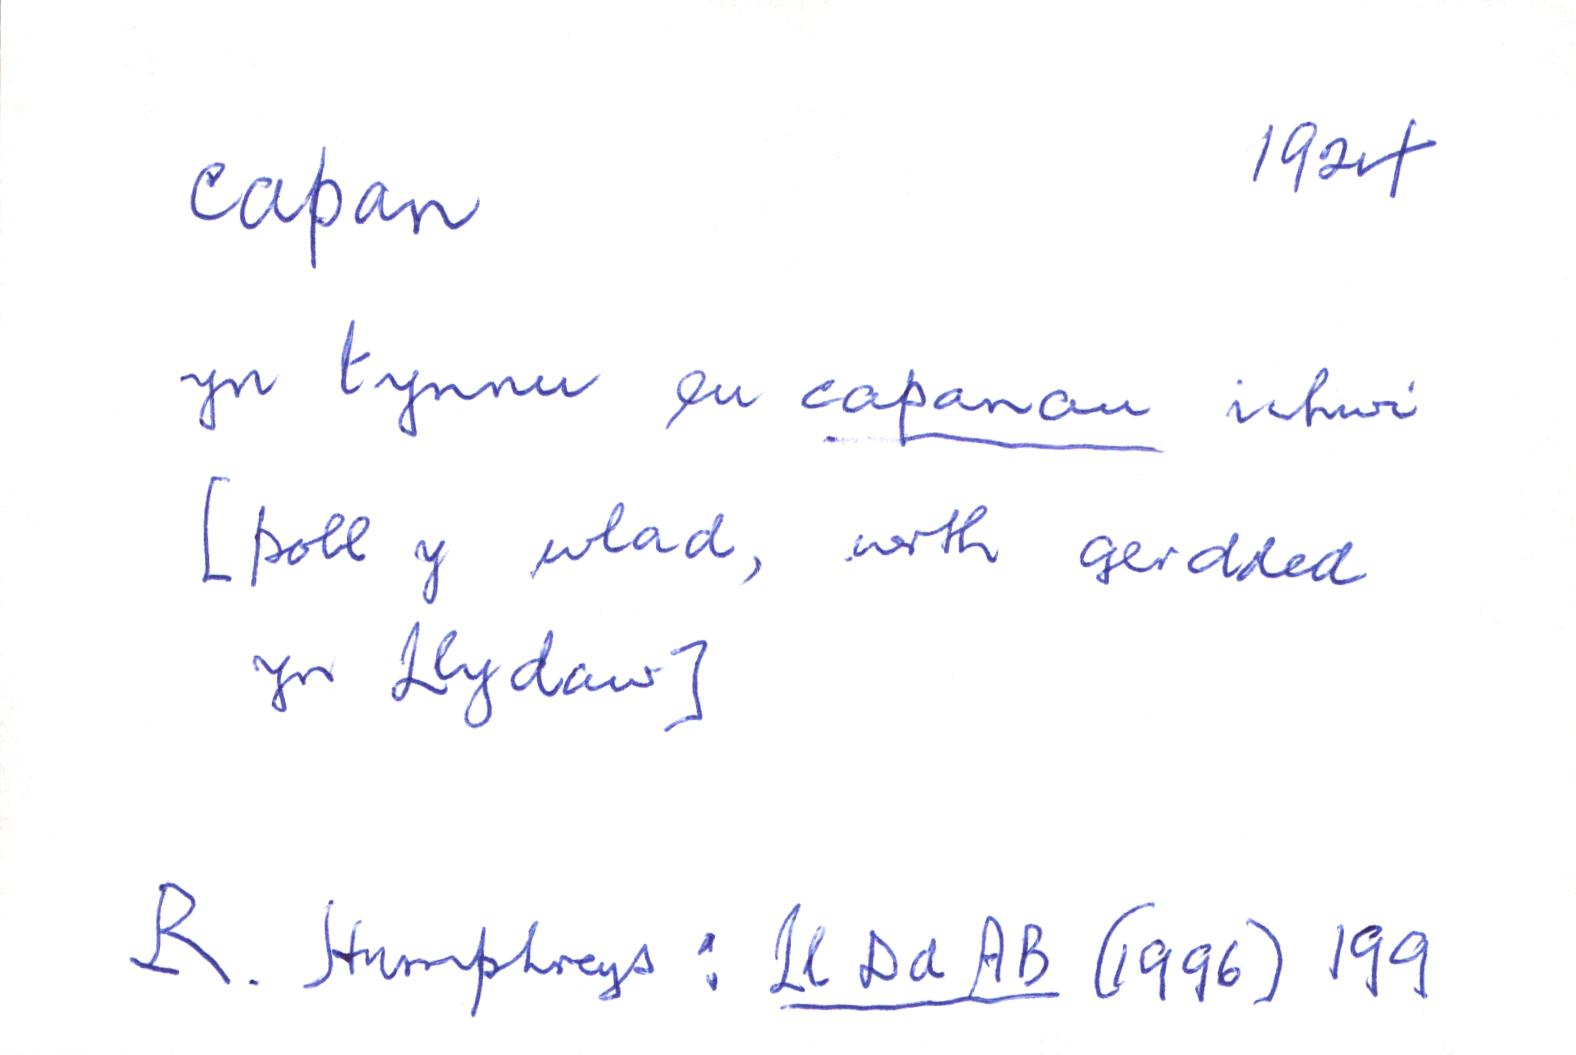 capan 1924
yn tynnu eu capanau ichwi
[pobl y wlad, wrth gerdded
yn Llydaw]
R. Humphreys : Ll Dd AB (1996) 199